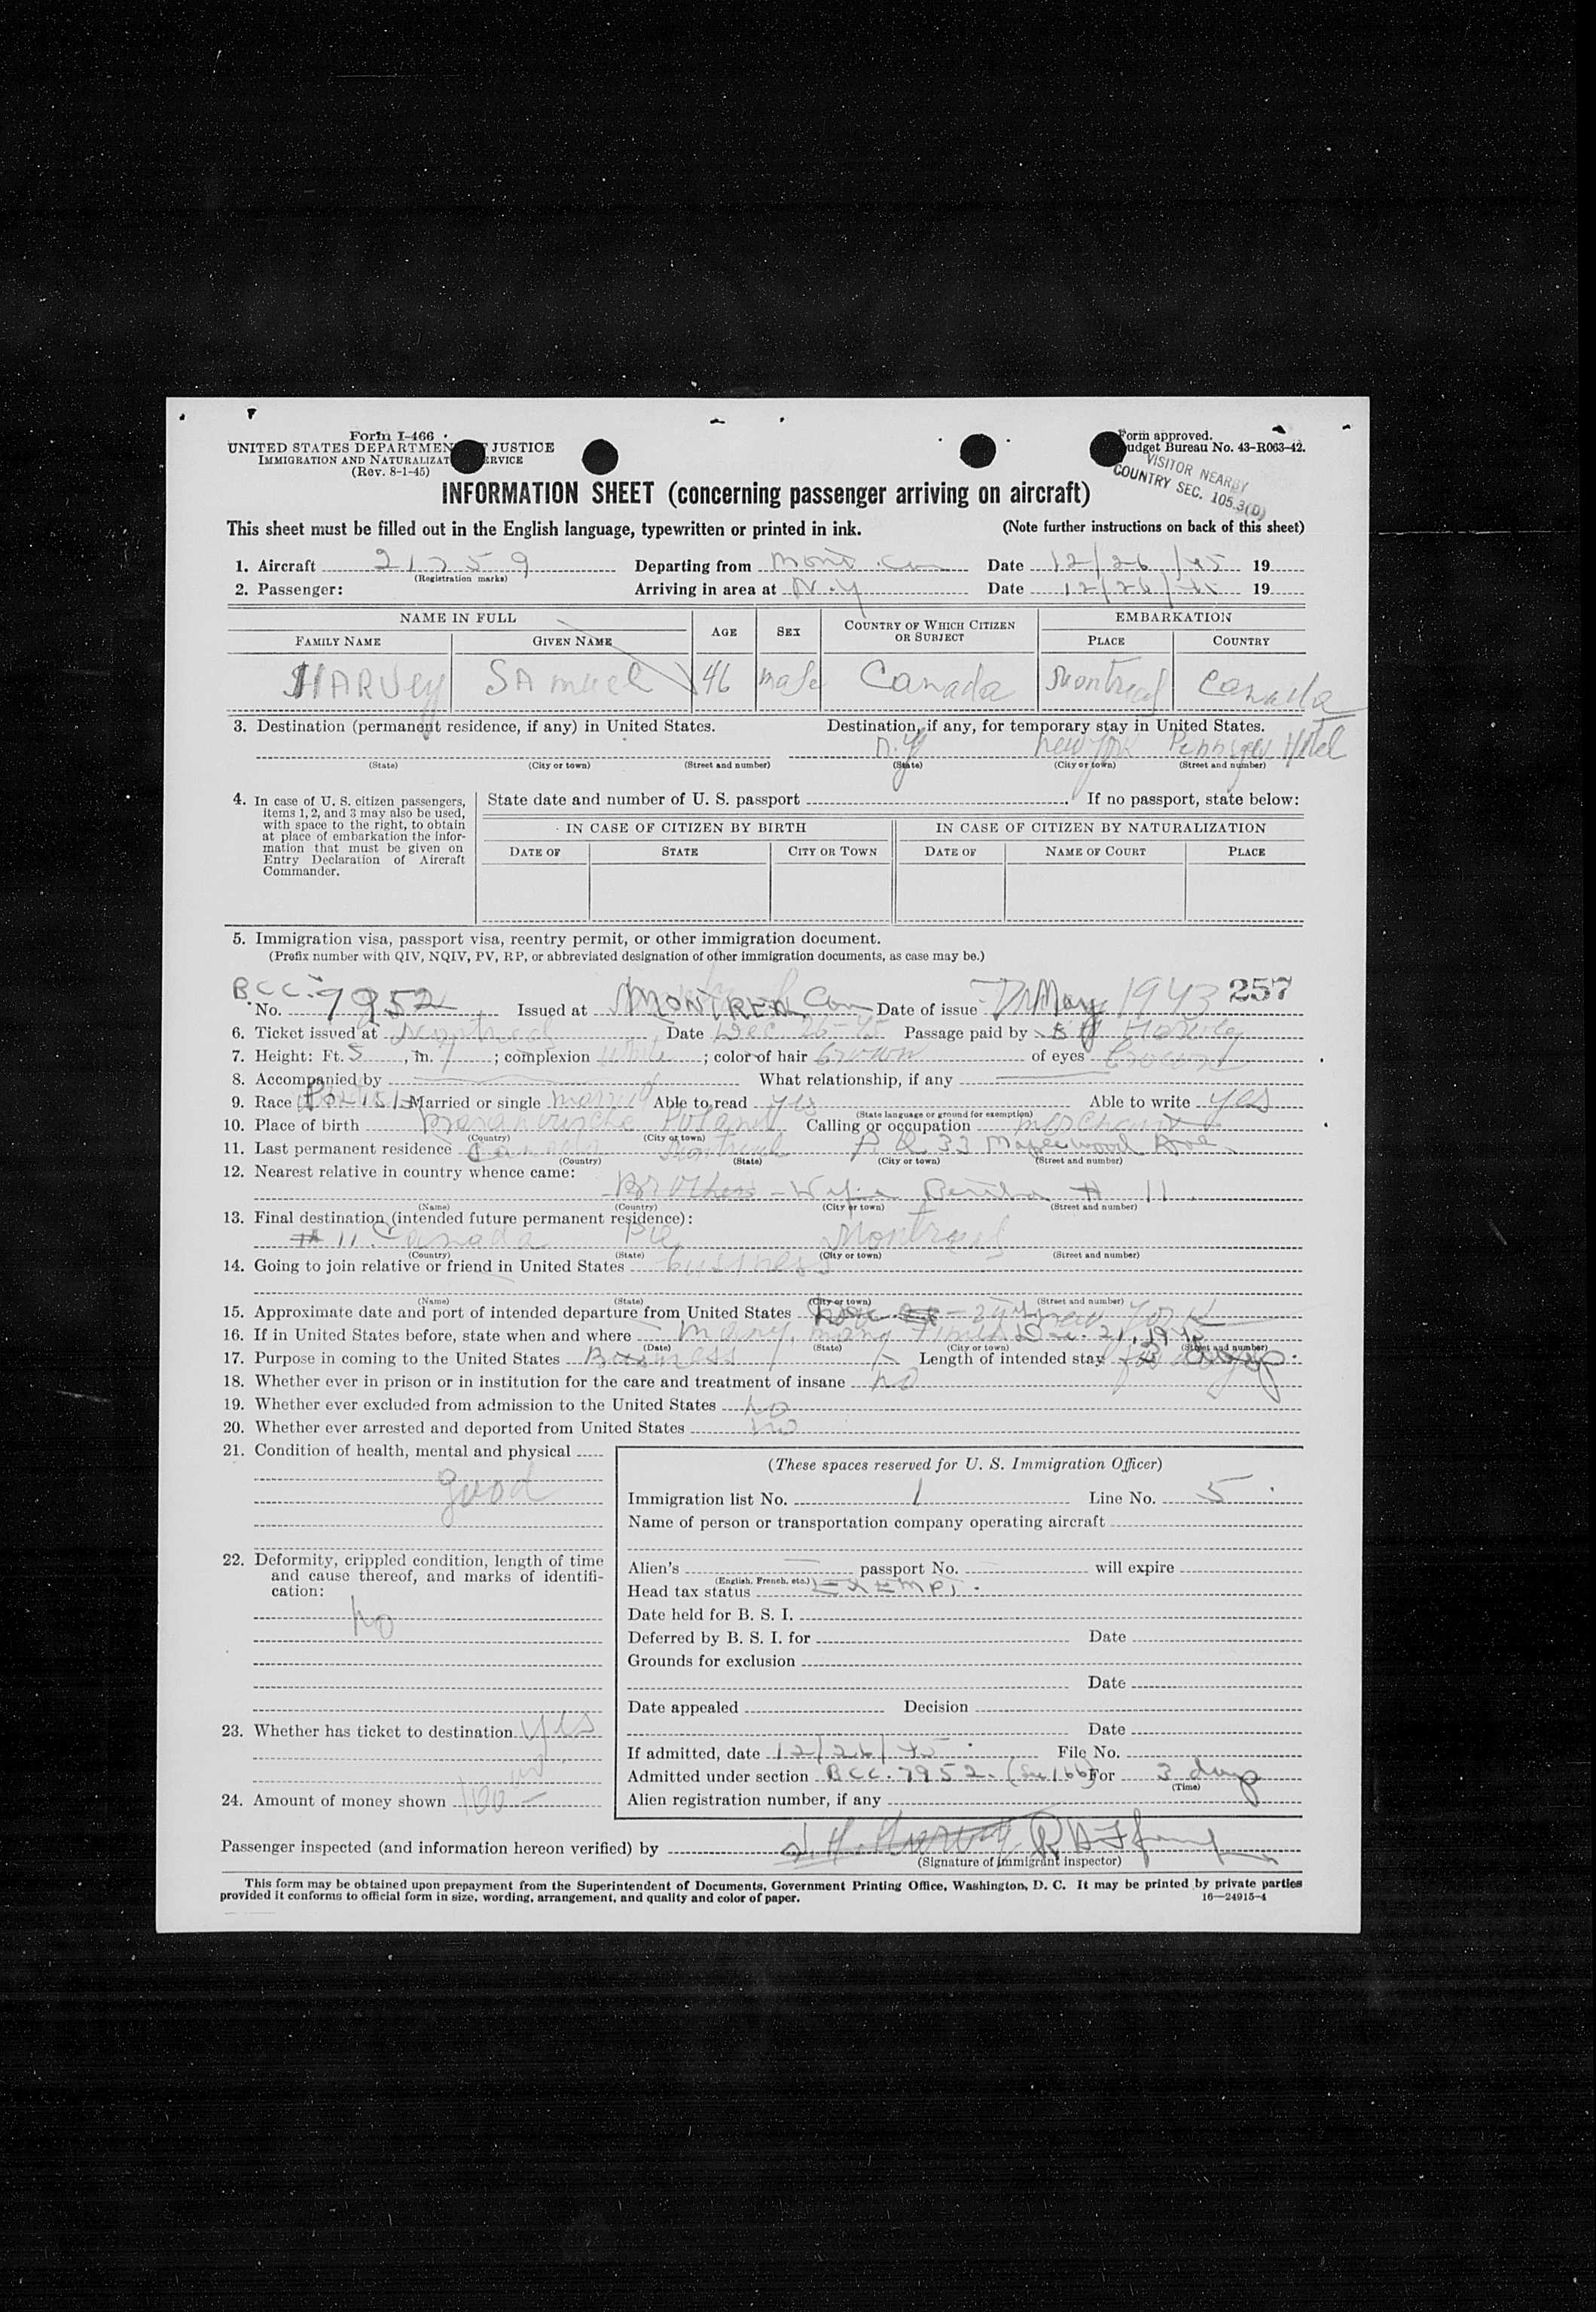 Form I-466
UNITED STATES DEPARTMENT JUSTICE
IMMIGRATION AND NATURALIZAT ERVICE
(Rev. 8-1-45)
Form approved.
udget Bureau No. 43-R063-42.
VISITOR NEARBY
COUNTRY SEC. 105.3(D)
INFORMATION SHEET (concerning passenger arriving on aircraft)
This sheet must be filled out in the English language, typewritten or printed in ink. (Note further instructions on back of this sheet)
1. Aircraft 21759 Departing from Mont. Can Date 12/26/45 19
(Registration marks)
2. Passenger: Arriving in area at N.Y Date 12/26/45 19
NAME IN FULL AGE SEX COUNTRY OF WHICH CITIZEN OR SUBJECT EMBARKATION
FAMILY NAME GIVEN NAME PLACE COUNTRY
HARVEY SAmuel 46 male Canada Montreal Canada
3. Destination (permanent residence, if any) in United States. Destination, if any, for temporary stay in United States.
N.Y New York Hotel
(State) (City or town) (Street and number) (State) (City or town) (Street and number)
4. In case of U. S. citizen passengers, items 1, 2, and 3 may also be used, with space to the right, to obtain at place of embarkation the information that must be given on Entry Declaration of Aircraft Commander.
State date and number of U. S. passport If no passport, state below:
IN CASE OF CITIZEN BY BIRTH IN CASE OF CITIZEN BY NATURALIZATION
DATE OF STATE CITY OR TOWN DATE OF NAME OF COURT PLACE
5. Immigration visa, passport visa, reentry permit, or other immigration document.
(Prefix number with QIV, NQIV, PV, RP, or abbreviated designation of other immigration documents, as case may be.)
BCC. No. 7952 Issued at MONTREAL Can Date of issue May 1943 257
6. Ticket issued at Montreal Date Dec 26-45 Passage paid by Harvey
7. Height: Ft. 5, in. 7; complexion white; color of hair brown of eyes brown
8. Accompanied by What relationship, if any
9. Race Polish Married or single married Able to read yes Able to write yes
(State language or ground for exemption)
10. Place of birth Poland Calling or occupation merchant
(Country) (City or town)
11. Last permanent residence Canada Montreal 33 Maplewood Ave
(Country) (State) (City or town) (Street and number)
12. Nearest relative in country whence came:
Brother - Wife Bertha # 11
(Name) (Country) (City or town) (Street and number)
13. Final destination (intended future permanent residence):
# 11. Canada Montreal
(Country) (State) (City or town) (Street and number)
14. Going to join relative or friend in United States business
(Name) (State) (City or town) (Street and number)
15. Approximate date and port of intended departure from United States New York
16. If in United States before, state when and where Many, many times Dec. 21, 1945
(Date) (State) (City or town) (Street and number)
17. Purpose in coming to the United States Business Length of intended stay 3 days
18. Whether ever in prison or in institution for the care and treatment of insane no
19. Whether ever excluded from admission to the United States no
20. Whether ever arrested and deported from United States no
21. Condition of health, mental and physical
good
22. Deformity, crippled condition, length of time and cause thereof, and marks of identification:
no
23. Whether has ticket to destination yes
24. Amount of money shown 100
(These spaces reserved for U. S. Immigration Officer)
Immigration list No. 1 Line No. 5
Name of person or transportation company operating aircraft
Alien's passport No. will expire
(English, French, etc.)
Head tax status EXEMPT.
Date held for B. S. I.
Deferred by B. S. I. for Date
Grounds for exclusion
Date
Date appealed Decision
Date
If admitted, date 12/26/45 File No.
Admitted under section BCC. 7952. For 3 days
(Time)
Alien registration number, if any
Passenger inspected (and information hereon verified) by
(Signature of immigrant inspector)
This form may be obtained upon prepayment from the Superintendent of Documents, Government Printing Office, Washington, D. C. It may be printed by private parties
provided it conforms to official form in size, wording, arrangement, and quality and color of paper. 16—24915-4